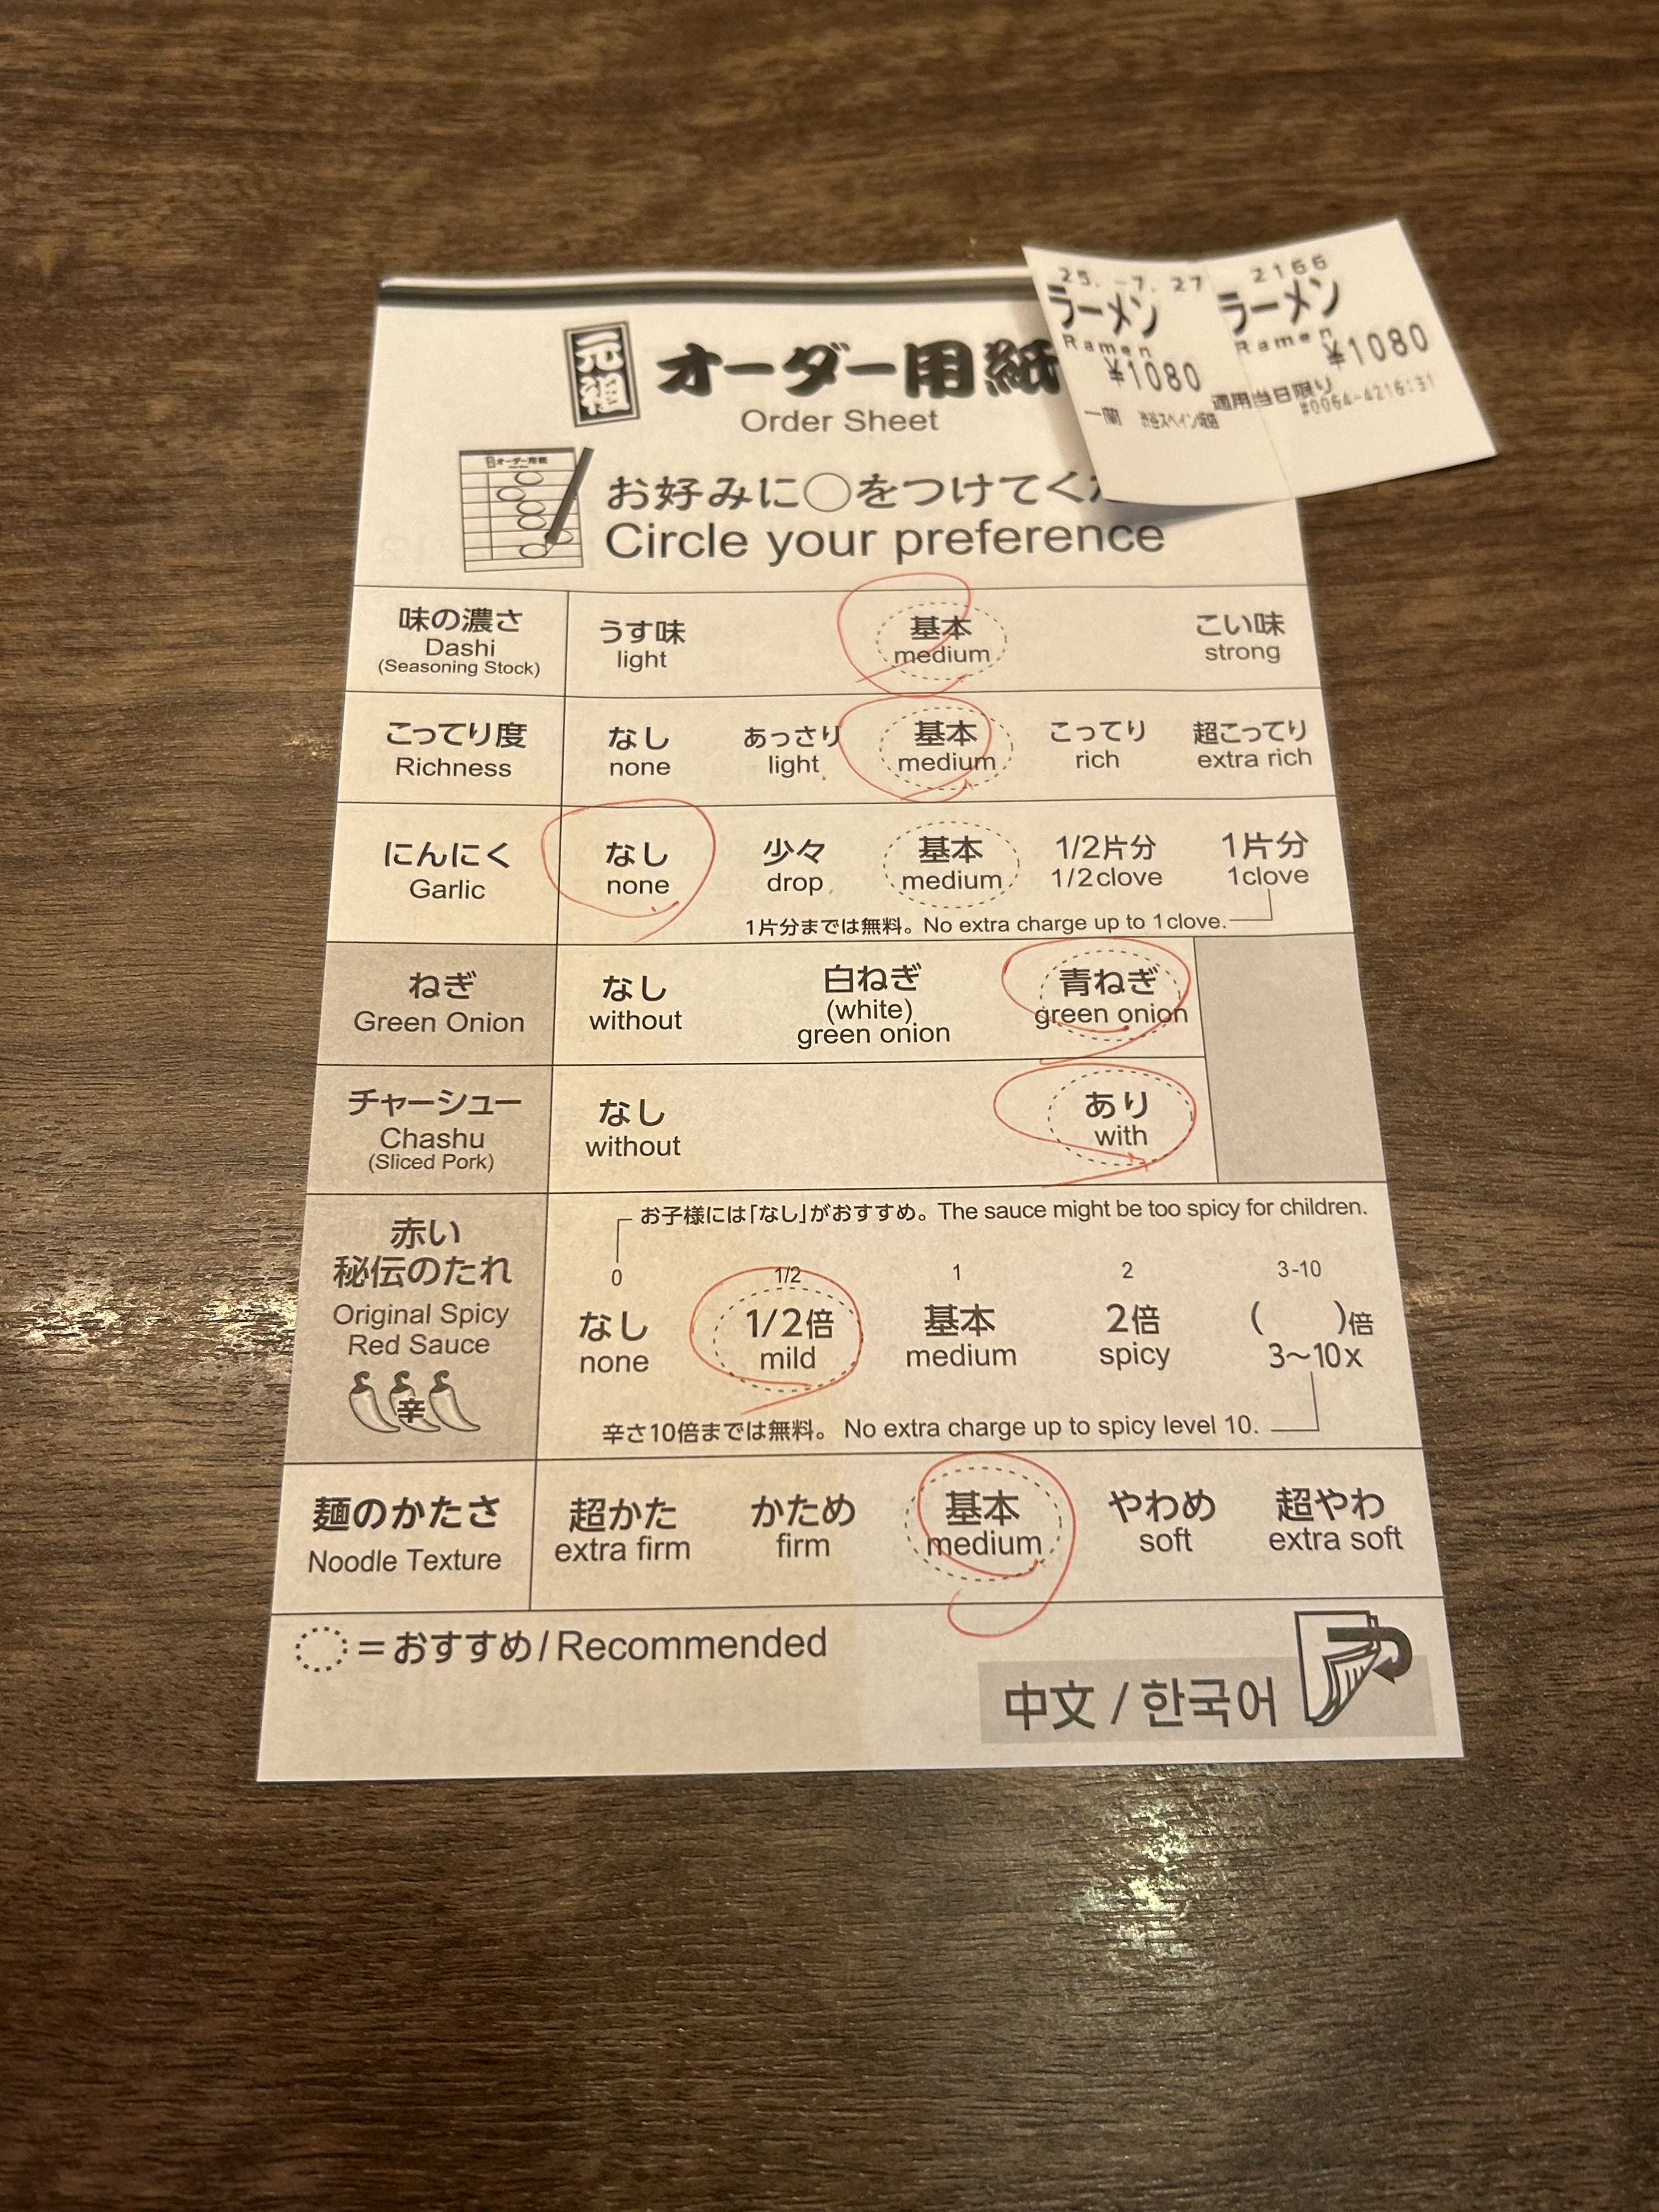 元祖
オーダー用紙
Order Sheet
25.-7.27
ラーメン
Ramen
¥1080
一蘭 渋谷スペイン坂店
2166
ラーメン
Ramen
¥1080
適用当日限り
#0064-4216:31
オーダー用紙
お好みに○をつけてく
Circle your preference
味の濃さ
Dashi
(Seasoning Stock)
うす味
light
基本
medium
こい味
strong
こってり度
Richness
なし
none
あっさり
light
基本
medium
こってり
rich
超こってり
extra rich
にんにく
Garlic
なし
none
少々
drop
基本
medium
1/2片分
1/2clove
1片分
1clove
1片分までは無料。No extra charge up to 1clove.
ねぎ
Green Onion
なし
without
白ねぎ
(white)
green onion
青ねぎ
green onion
チャーシュー
Chashu
(Sliced Pork)
なし
without
あり
with
赤い
秘伝のたれ
Original Spicy
Red Sauce
辛
お子様には「なし」がおすすめ。The sauce might be too spicy for children.
0
なし
none
1/2
1/2倍
mild
1
基本
medium
2
2倍
spicy
3-10
( )倍
3〜10x
辛さ10倍までは無料。No extra charge up to spicy level 10.
麺のかたさ
Noodle Texture
超かた
extra firm
かため
firm
基本
medium
やわめ
soft
超やわ
extra soft
=おすすめ/Recommended
中文/한국어